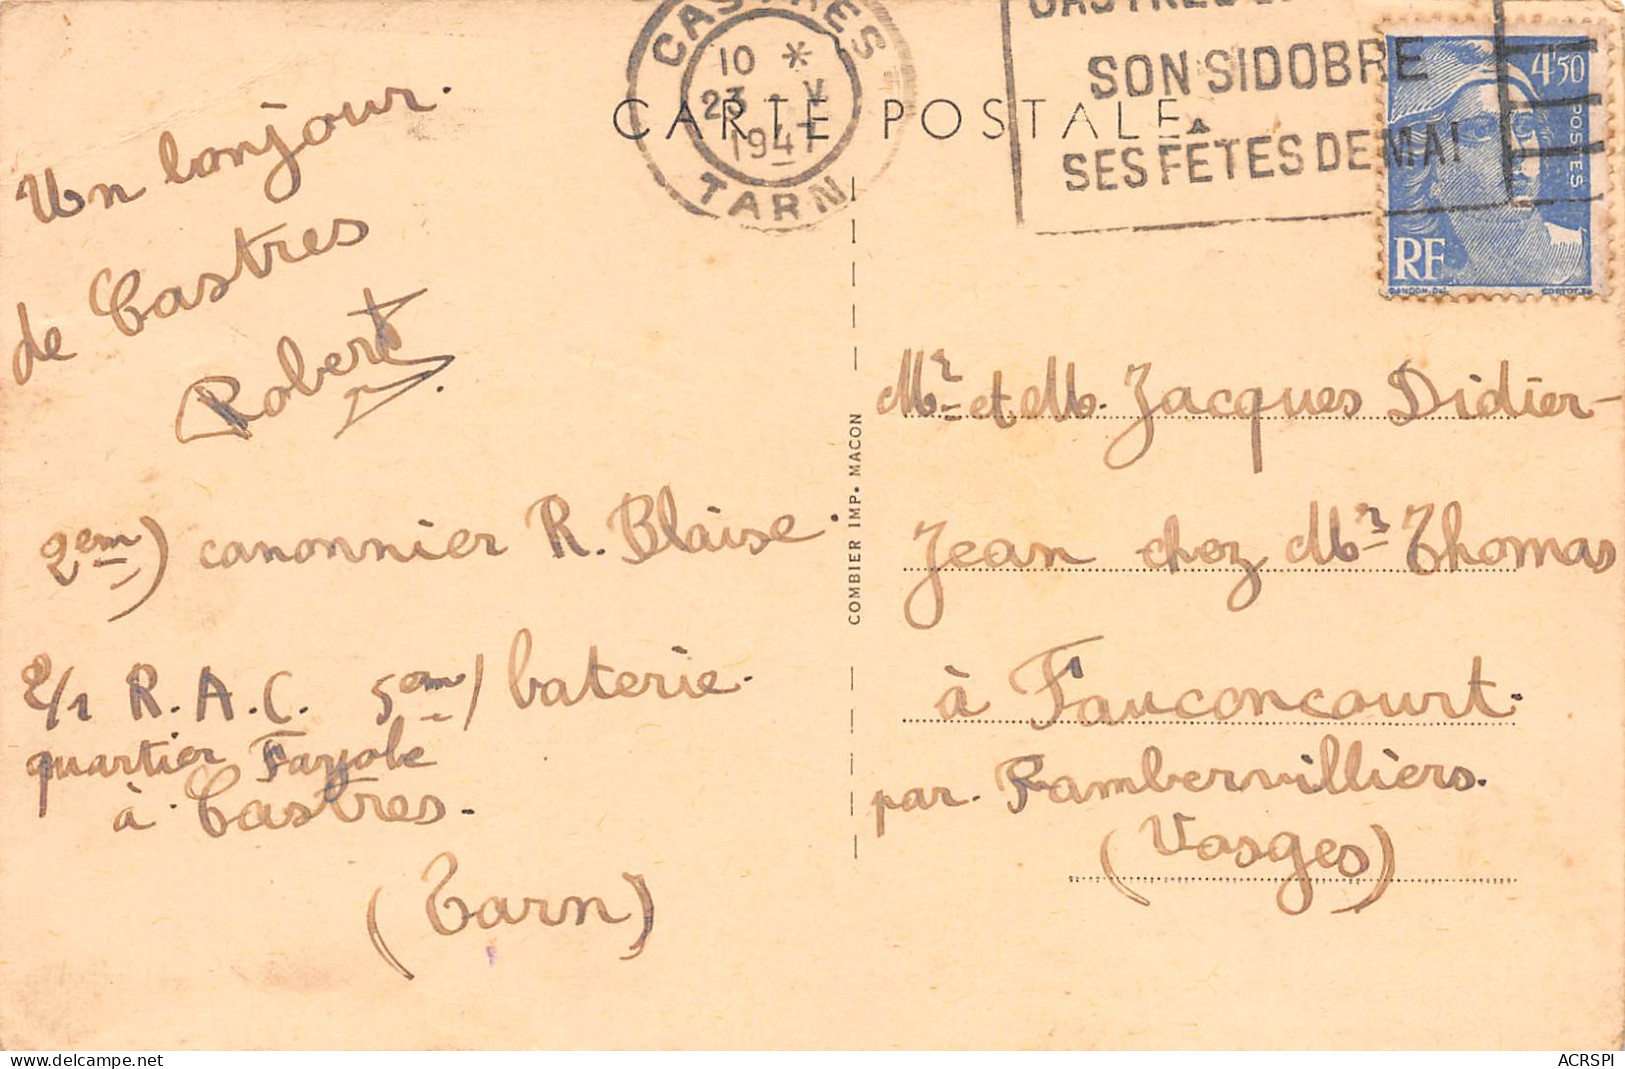 CASTRES
10 *
23 - V
1947
TARN
SON SIDOBRE
SES FÊTES DE MAI
4F50
POSTES
RF
CARTE POSTALE
Un bonjour.
de Castres
Robert
2em) canonnier R. Blaise.
2/1 R.A.C. 5em) baterie.
quartier Fayole
à Castres.
(Tarn)
COMBIER IMP. MACON
Mr et M. Jacques Didier-
Jean chez Mr Thomas
à Fauconcourt.
par. Rambervilliers.
(Vosges)
delcampe.net
ACRSPI